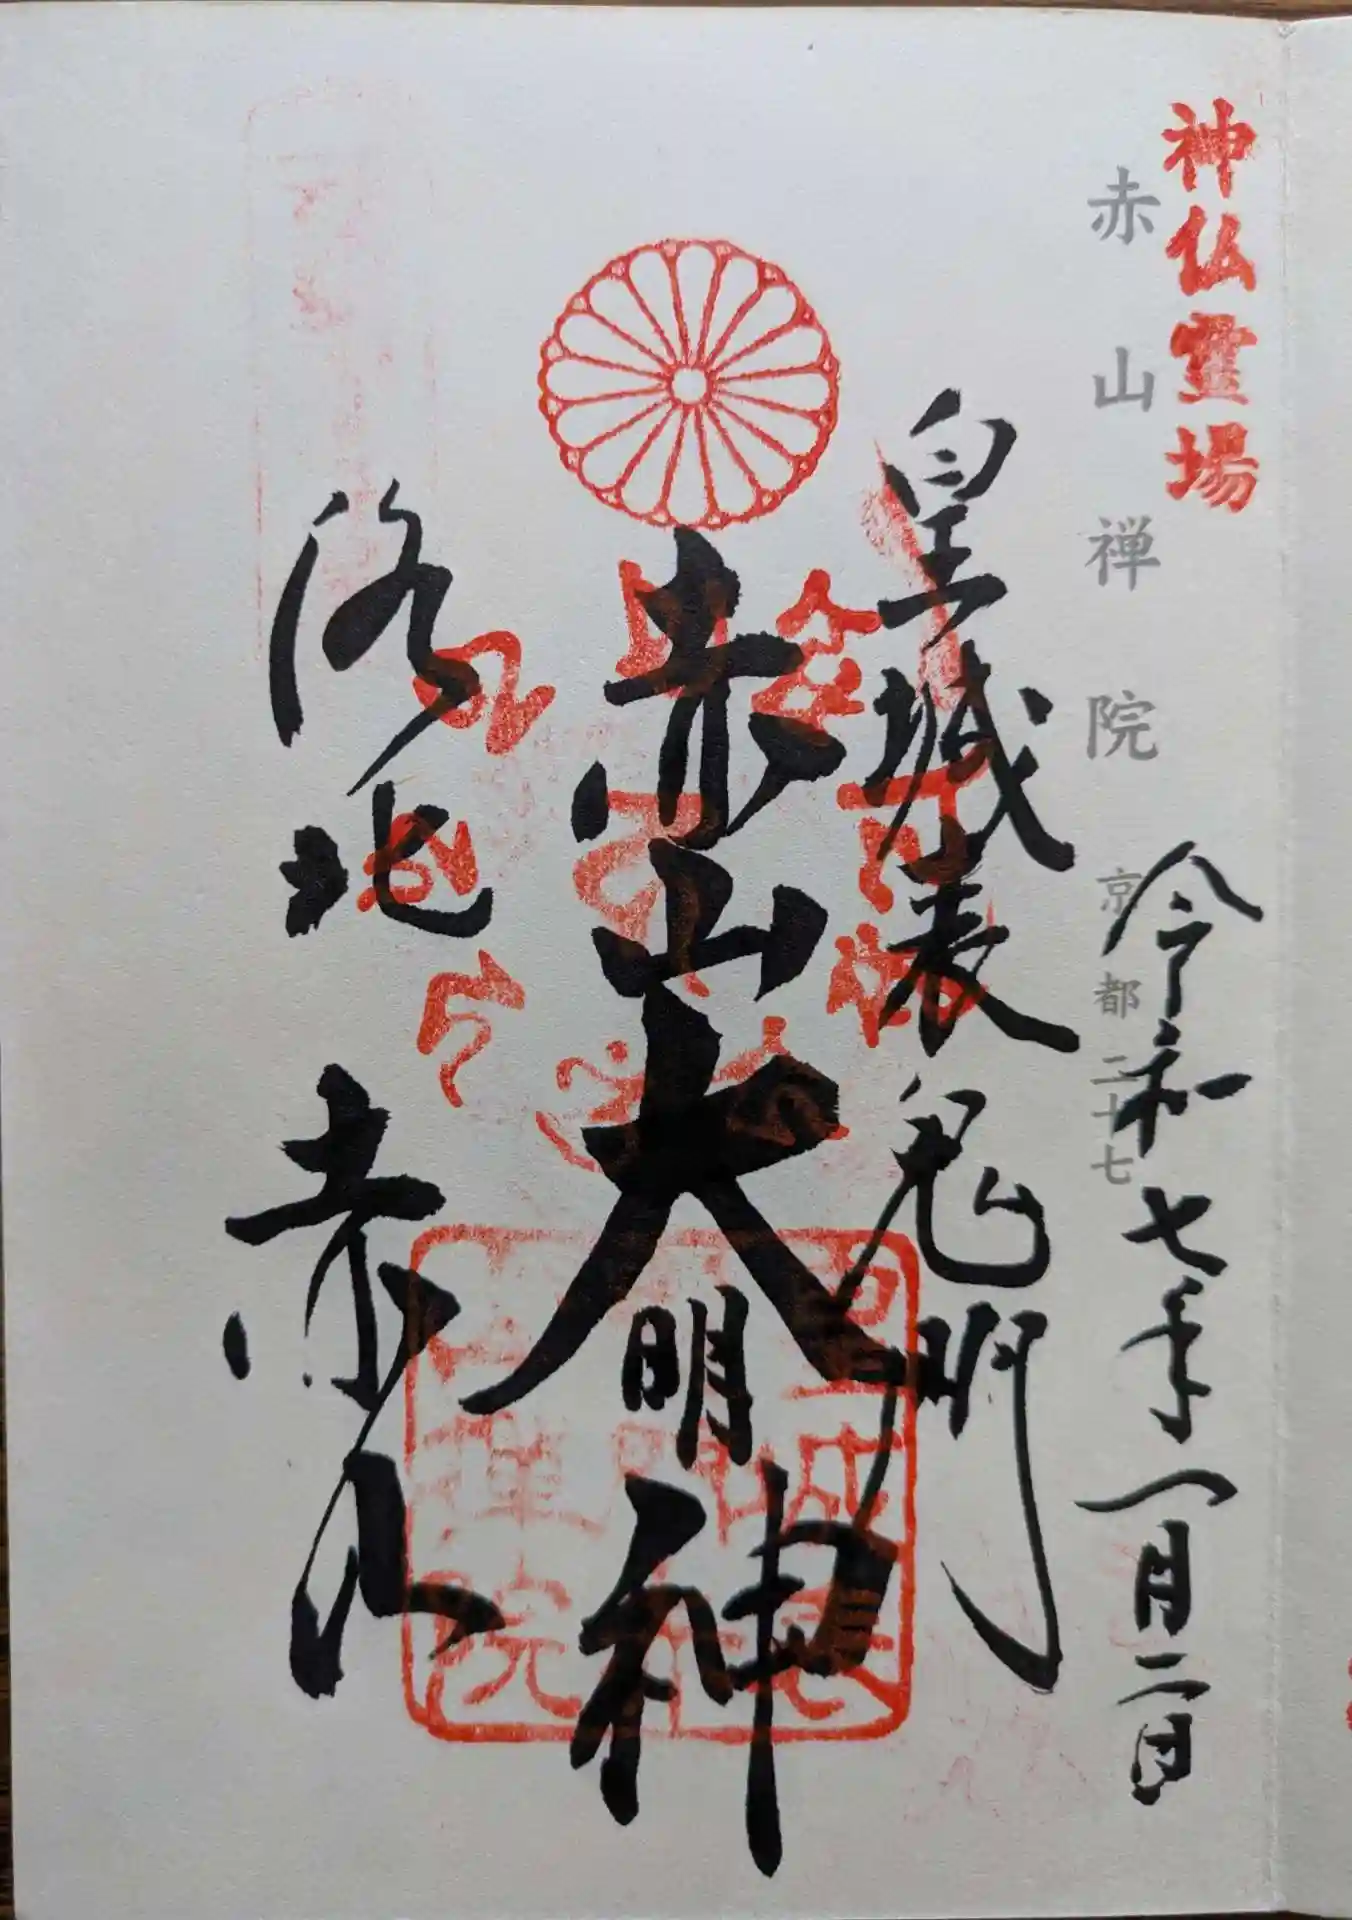 神仏霊場
赤山禅院 京都二十七
令和七年一月二日
皇城表鬼門
赤山大明神
洛北 赤山